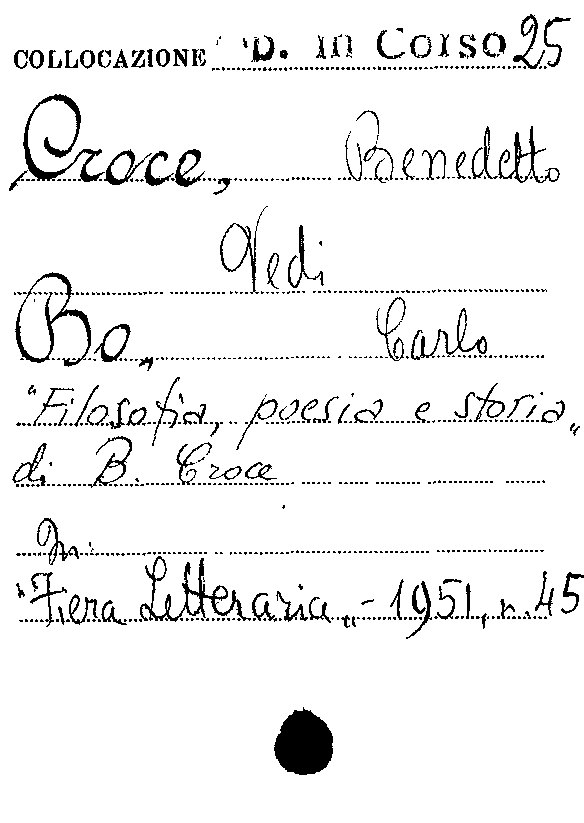 COLLOCAZIONE D. in Corso 25
Croce, Benedetto
Vedi
Bo, Carlo
"Filosofia, poesia e storia„
di B. Croce
In:
"Fiera Letteraria„ - 1951, n. 45